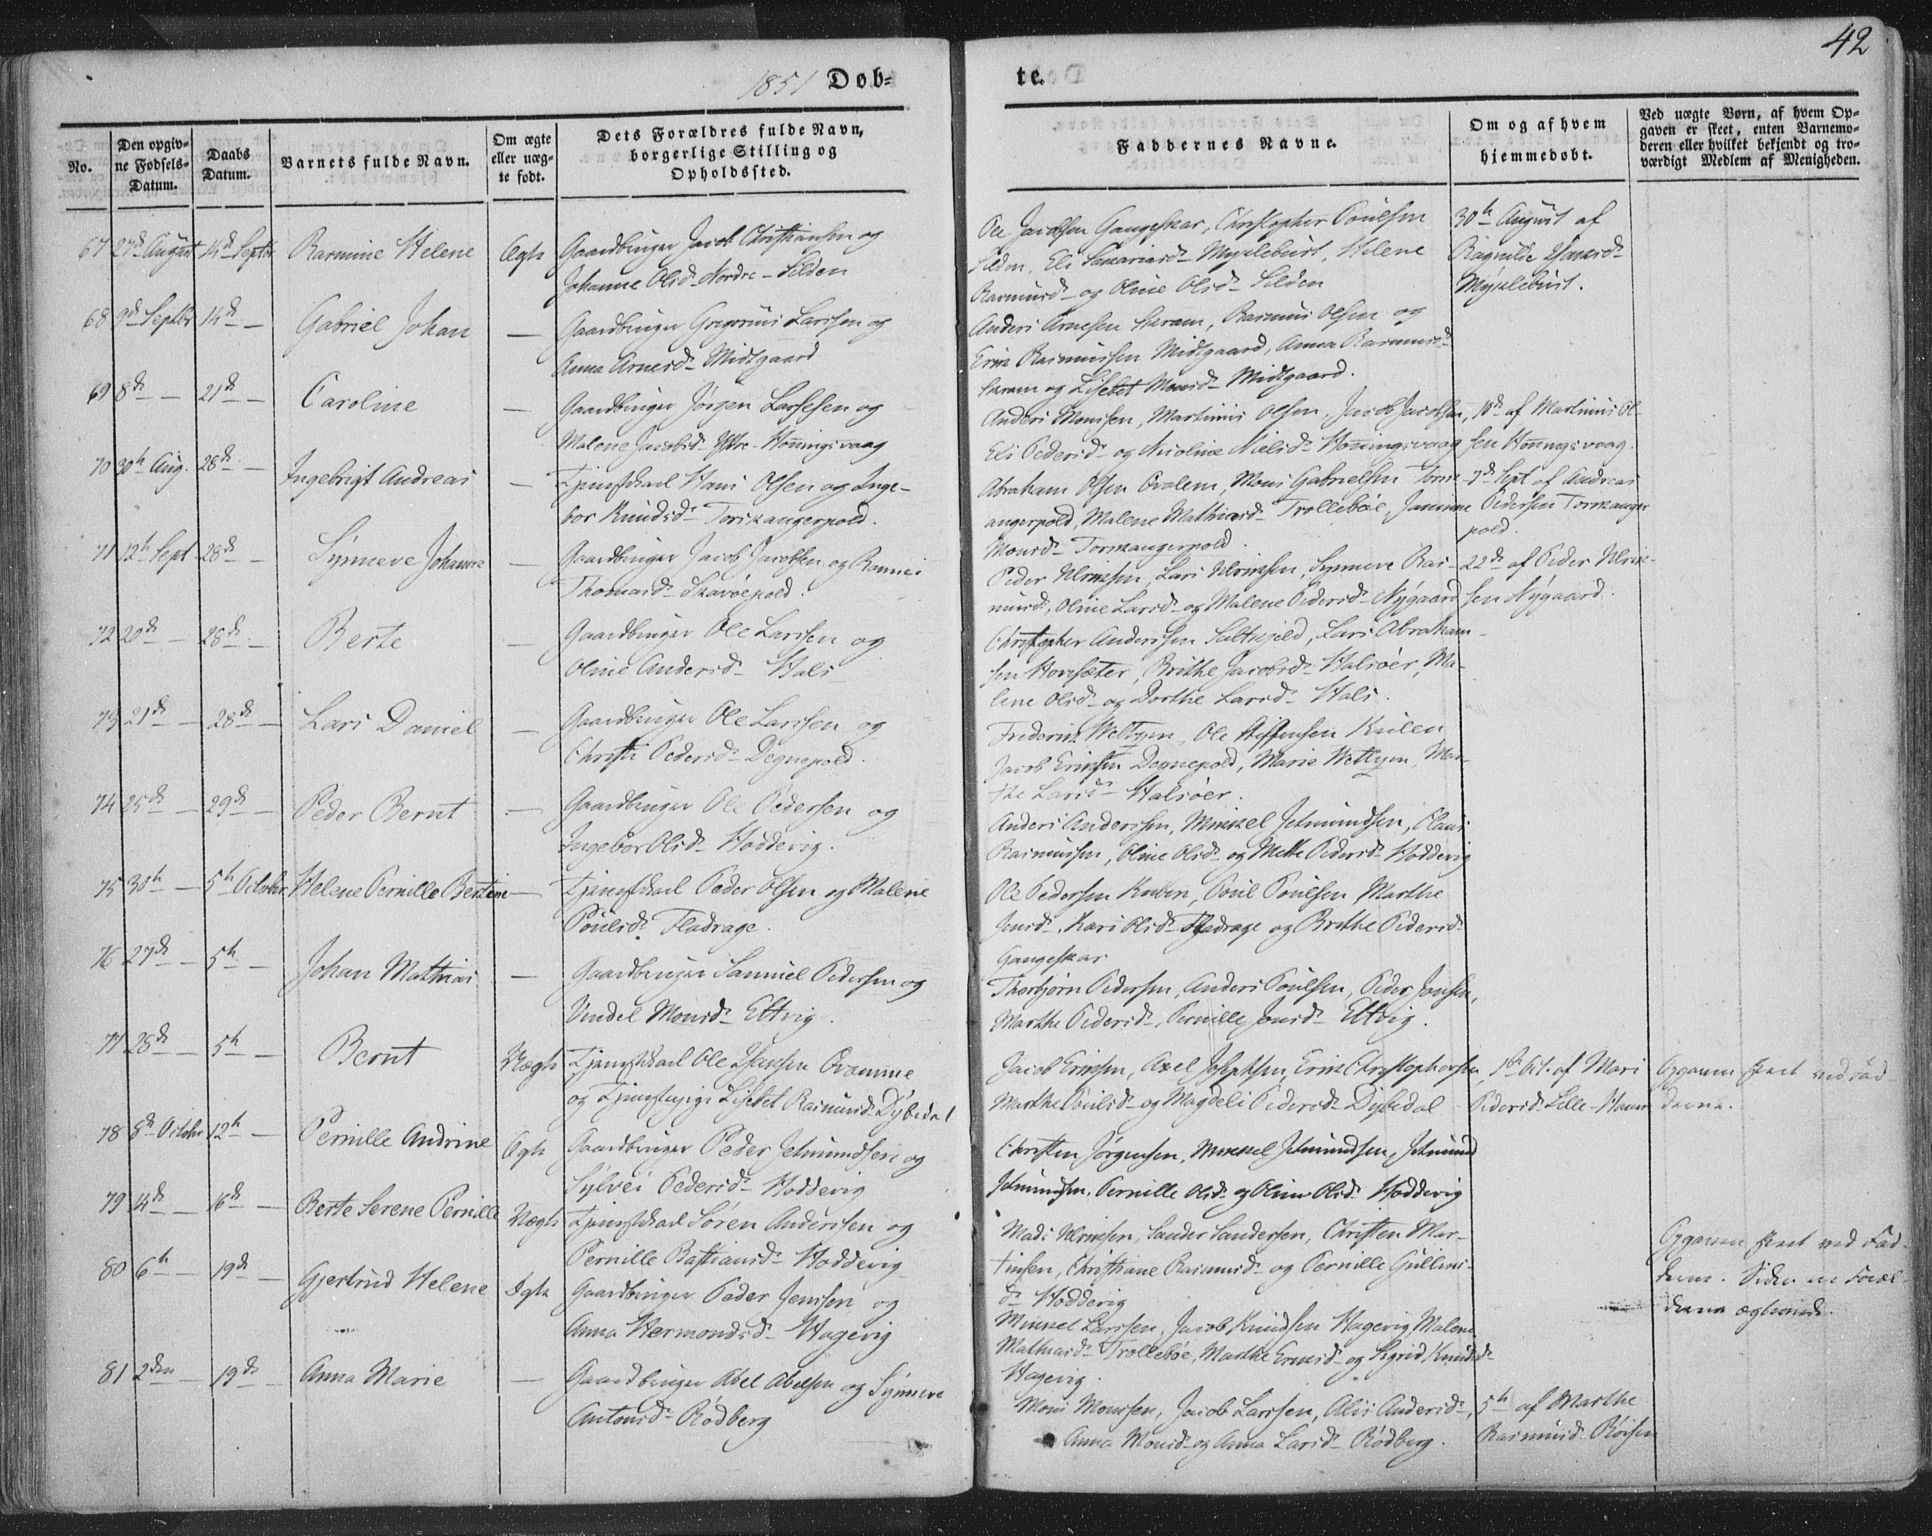 42
1851 Døb-
te.
No.
Den opgiv-
ne Fødsels-
Datum.
Daabs
Datum.
Barnets fulde Navn.
Om ægte
eller uæg-
te født.
Dets Forældres fulde Navn,
borgerlige Stilling og
Opholdssted.
Faddernes Navne.
Om og af hvem
hjemmedøbt.
Ved uægte Børn, af hvem Op-
gaven er skeet, enten Barnemo-
deren eller hvilket bekjendt og tro-
værdigt Medlem af Menigheden.
67 27de August 14de Septbr Rasmine Helene Ægte Gaardbruger Jacob Christiansen og
Johanne Olsd. Nordre-Silden
Ole Jacobsen Gangeskar, Christopher Poulsen
Silden, Eli Zakariasd. Myklebust, Helene
Rasmusd. og Oline Olsd. Silden
30te August af
Ragnilde Hansd.
Myklebust.
68 9de Septbr 14de — Gabriel Johan — Gaardbruger Gregorius Larssen og
Anna Arnesd. Midtgaard
Anders Arnesen Haram, Rasmus Olsen og
Erik Rasmussen Midtgaard, Anna Rasmusd.
Haram og Lisebet Monsd. Midtgaard.
69 8de — 21de — Caroline — Gaardbruger Jørgen Larsen og
Malene Jacobsd. Yttre-Honningsvaag
Anders Monssen, Martinus Olsen, Jacob Jacobsen,
Eli Pedersd. og Nicoline Nielsd. Honningsvaag
10de af Martinus Ol-
sen Honningsvaag.
70 30te Aug. 28de — Ingebrigt Andreas — Tjenestekarl Hans Olsen og Inge-
bor Knudsd. Torskangerpold.
Abraham Olsen Ovalem, Mons Gabrielsen Torsk-
angerpold, Malene Mathiasd. Trollebøe, Jansine
Monsd. Torskangerpold.
7de Sept af Andreas
Pedersen Torskanger
pold.
71 12te Sept 28de — Synneve Johanne — Gaardbruger Jacob Jacobsen og Rannei
Thomasd. Skavøepold.
Peder Ulriksen, Lars Ulriksen, Synneve Ras-
musd., Oline Larsd. og Malene Pedersd. Nygaard
22de af Peder Ulrik-
sen Nygaard.
72 20de — 28de — Berte — Gaardbruger Ole Larssen og
Oline Andersd. Hals
Christopher Anderssen Saltkjeld, Lars Abraham-
sen Hovsæter, Brithe Jacobsd. Halsøer, Ma-
lene Olsd. og Dorthe Larsd. Hals.
73 21de — 28de — Lars Daniel — Gaardbruger Ole Larssen og
Christi Pedersd. Degnepold.
Frederik Weltzen, Ole Steffensen Kulen
Jacob Eriksen Degnepold, Marie Weltzen, Mar-
the Larsd. Halsøer.
74 25de — 29de — Peder Bernt — Gaardbruger Ole Pedersen og
Ingebor Olsd. Hoddevig.
Anders Anderssen, Mikkel Jetmundsen, Claus
Rasmussen, Oline Olsd. og Mette Pedersd. Hoddevig
75 30te — 5te October Helene Pernille Bertine — Tjenestekarl Peder Olsen og Malene
Poulsd. Fladrage.
Ole Pedersen Kulen, Poul Poulsen, Marthe
Jensd., Kari Olsd. Fladrage og Brithe Pedersd.
Gangeskar
76 27de — 5te — Johan Mathias — Gaardbruger Samuel Pedersen og
Vindel Monsd. Eltvig.
Thorbjørn Pedersen, Anders Poulsen, Peder Jonsen,
Marthe Pedersd., Pernille Jonsd. Eltvig.
77 28de — 5te — Bernt Uægte Tjenestekarl Ole Hanssen Ovamme
og Tjenestepige Lisebet Rasmusd. Dybedal
Jacob Eriksen, Axel Josephsen, Erik Christophersen,
Marthe Poulsd. og Magdeli Pedersd. Dybedal
1ste Oct. af Mari
Pedersd. Lille-Hamn
Opgaven skeet ved Fad-
derne.
78 8de October 12te — Pernille Andrine Ægte Gaardbruger Peder Jetmundsen og
Sylvei Pedersd. Hoddevig
Christen Jørgensen, Mikkel Jetmundsen, Jetmund
Jetmundsen, Pernille Olsd. og Oline Olsd. Hoddevig
79 4de — 16de — Berte Serene Pernille Uægte Tjenestekarl Søren Anderssen og
Pernille Bastiansd. Hoddevig
Mads Ulriksen, Sander Sandersen, Christen Mar-
tinsen, Christiane Rasmusd. og Pernille Gullins-
d. Hoddevig
Opgaven skeet ved Fad-
derne. Siden ere Foræl-
drene ægteviede.
80 6te — 19de — Gjertrud Helene Ægte Gaardbruger Peder Jenssen og
Anna Hermondsd. Hagevig
Mikkel Larssen, Jacob Knudsen Hagevig, Malene
Mathiasd. Trollebøe, Marthe Ernsd. og Sigrid Knudsd.
Hagevig.
81 2den — 19de — Anna Marie — Gaardbruger Abel Abelsen og Synneve
Antonsd. Rødberg
Mons Monssen, Jacob Larssen, Alis Andersd.,
Anna Monsd. og Anna Larsd. Rødberg.
5te af Marthe
Rasmusd. Røisen